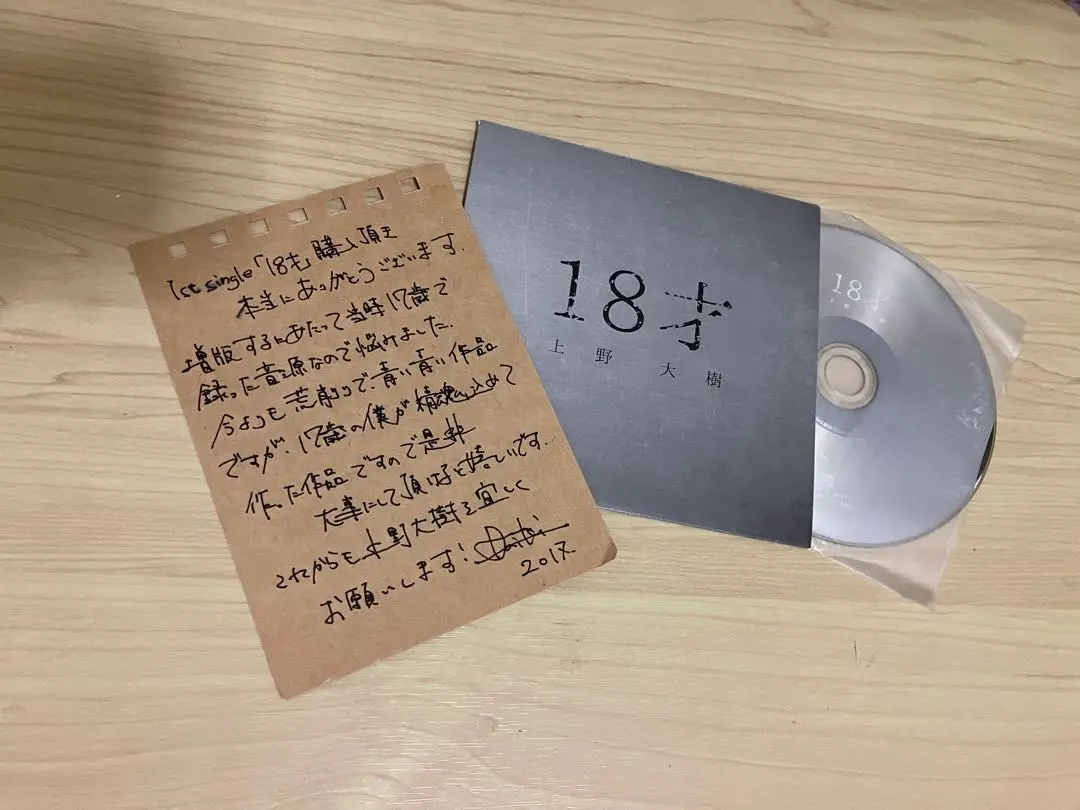 1st single「18才」購入頂き
本当にありがとうございます.
増版するにあたって当時17歳で
録った音源なので悩みました.
今よりも荒削りで、青い青い作品
ですが、17歳の僕が精魂込めて
作った作品ですので是非
大事にして頂けると嬉しいです.
これからも上野大樹を宜しく
お願いします! Daiki
2017.
18才
上野大樹
18才